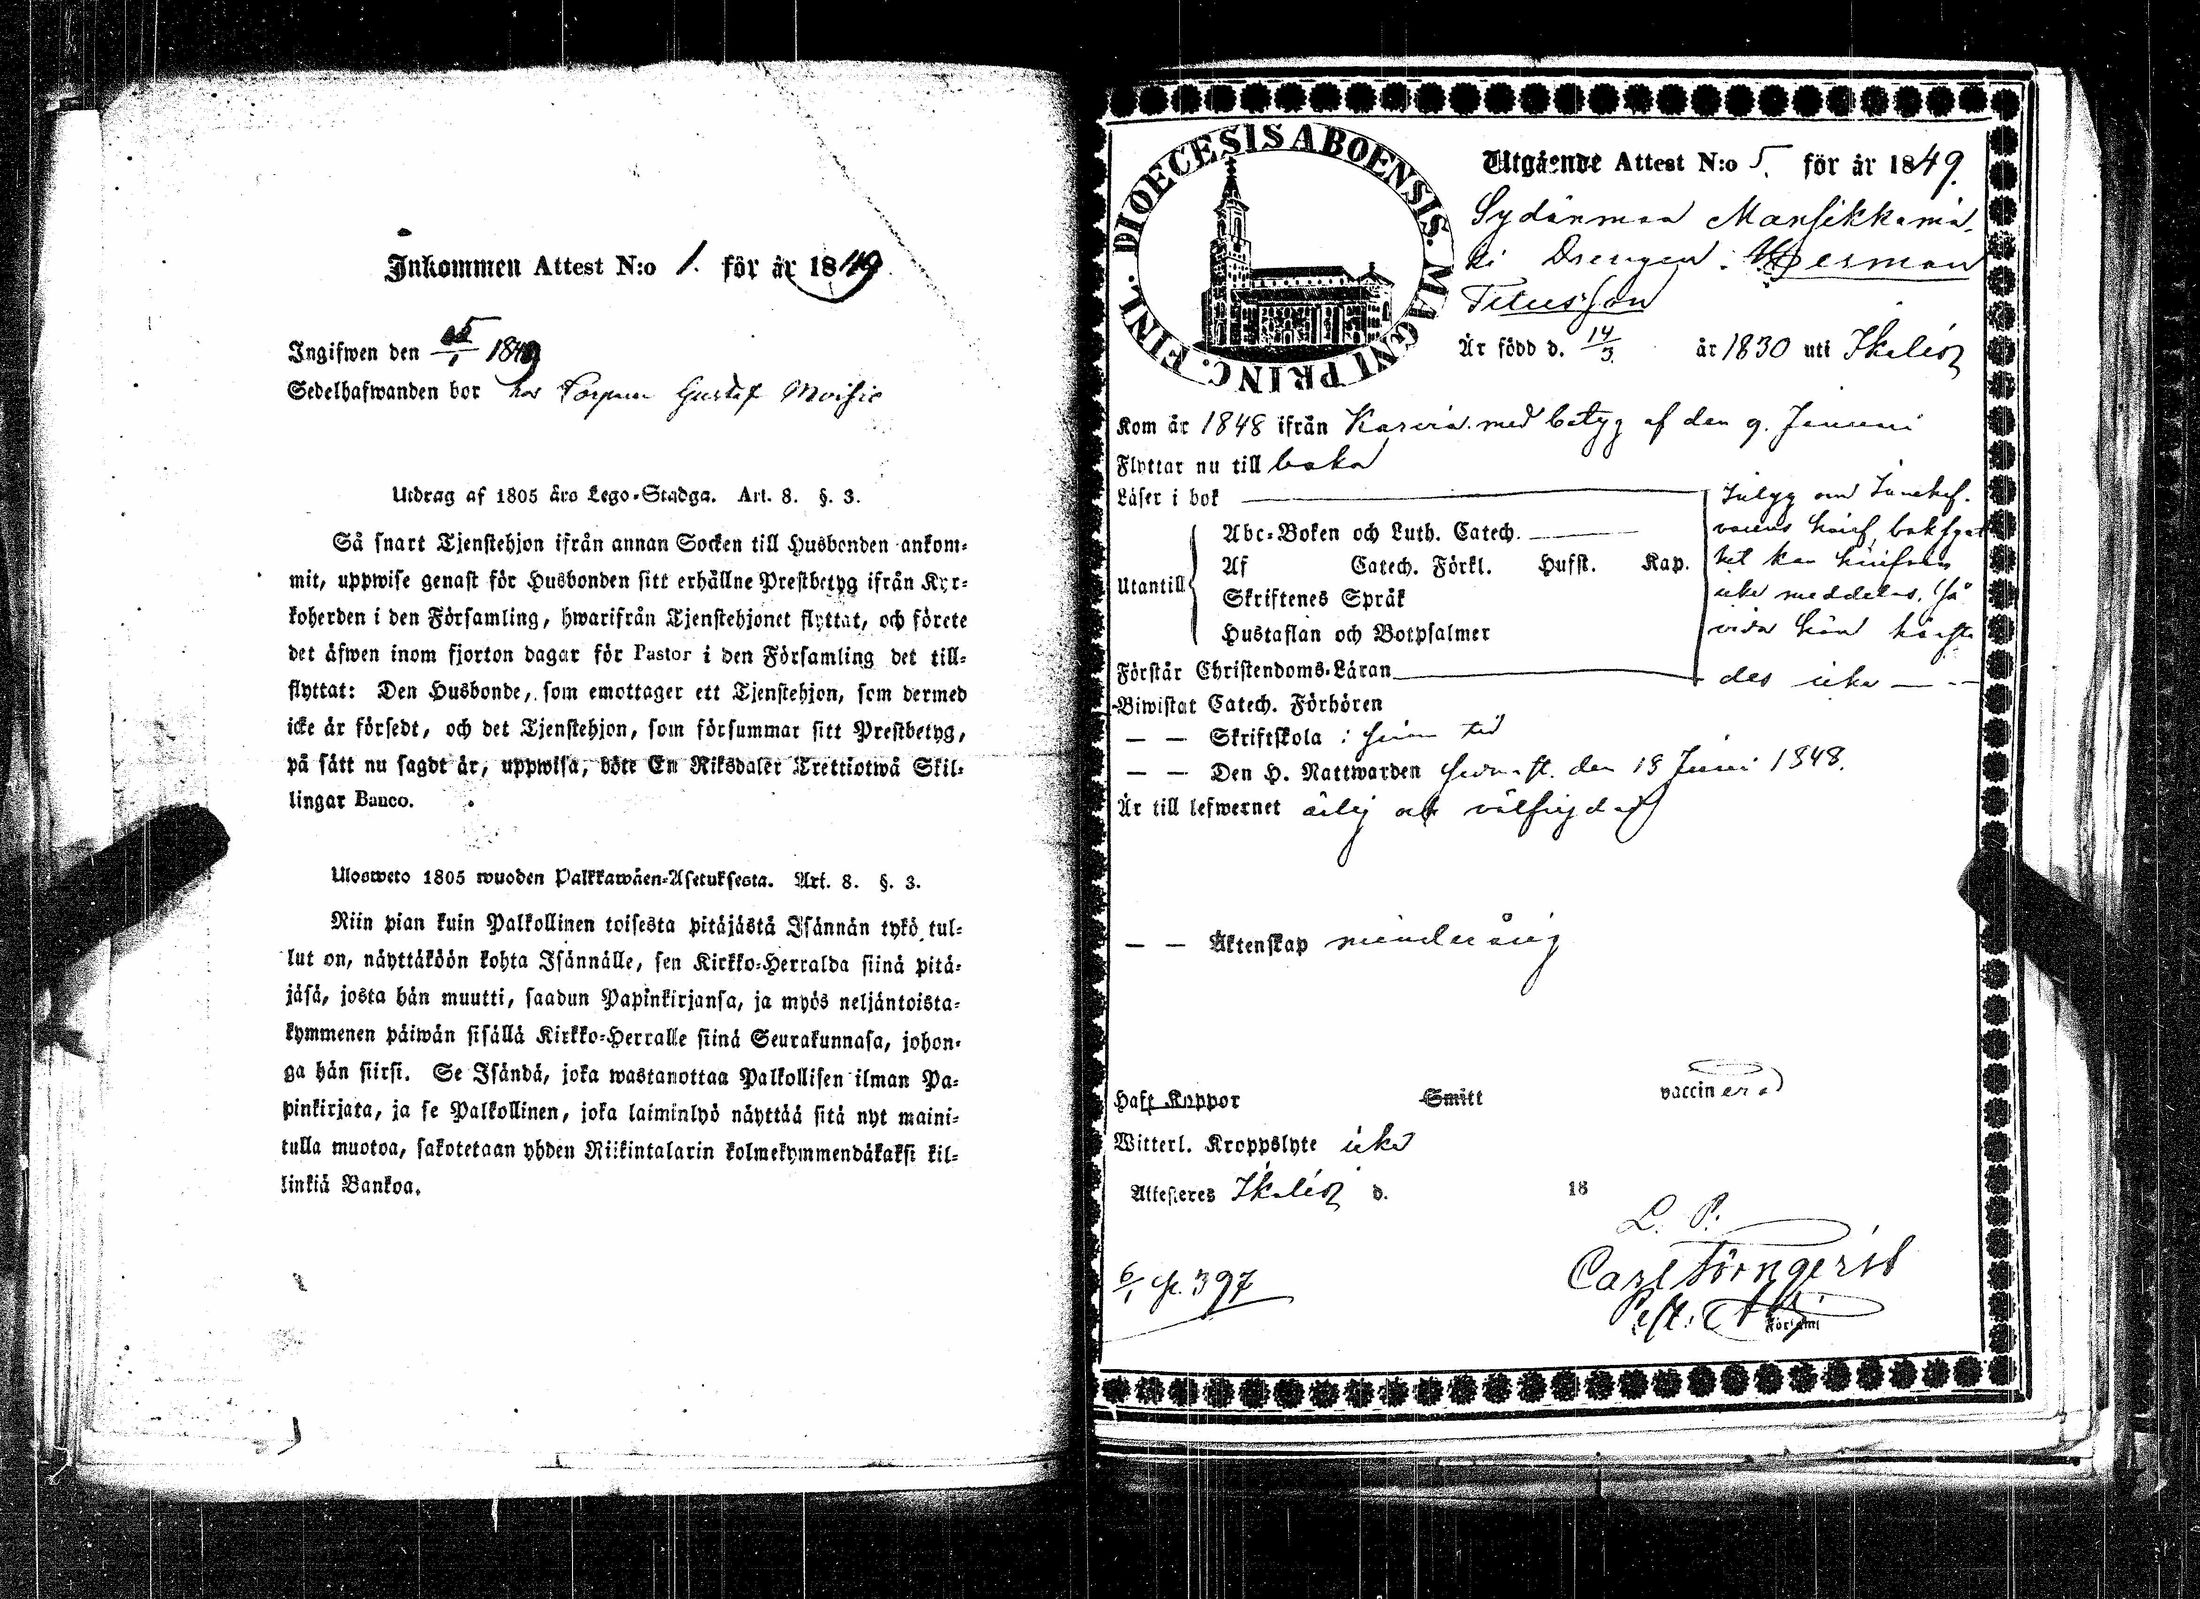 Inkommen Attest N:o 1. för år 1849
Ingifwen den 1849
Sedelhafwanden bor hos Gustaf
Utdrag af 1805 års Lego-Stadga. Art. 8. §. 3.
Så snart Tjenstehjon ifrån annan Socken till Husbonden ankom-
mit, uppwise genast för Husbonden sitt erhållne Prestbetyg ifrån Kyr-
koherden i den Församling, hwarifrån Tjenstehjonet flyttat, och förete
det äfwen inom fjorton dagar för Pastor i den Församling det till-
flyttat: Den Husbonde, som emottager ett Tjenstehjon, som dermed
icke är försedt, och det Tjenstehjon, som försummar sitt Prestbetyg,
på sätt nu sagdt är, uppwisa, böte En Riksdaler Trettiotwå Skil-
lingar Banco.
Ulosweto 1805 wuoden Palkkawäen-Asetuksesta. Art. 8. §. 3.
Niin pian kuin Palkollinen toisesta pitäjästä Isännän tykö tul-
lut on, näyttäköön kohta Isännälle, sen Kirkko-Herralda siinä pitä-
jäsä, josta hän muutti, saadun Papinkirjansa, ja myös neljäntoista-
kymmenen päiwän sisällä Kirkko-Herralle siinä Seurakunnasa, johon-
ga hän siirsi. Se Isändä, joka wastanottaa Palkollisen ilman Pa-
pinkirjata, ja se Palkollinen, joka laiminlyö näyttää sitä nyt maini-
tulla muotoa, sakotetaan yhden Riikintalarin kolmekymmendäkaksi kil-
linkiä Bankoa.
DIOECESIS ABOENSIS. MAGNI PRINC. FINL.
Utgående Attest N:o 5. för år 1849.
Sydänmaa Mansikkamä-
ki Drengen: Herman
Titusson
Är född d. 14/3 år 1830 uti Ikalis
Kom år 1848 ifrån Karvia med betyg af den 9. Januari
Flyttar nu till baka
Läser i bok
Abc-Boken och Luth. Catech.
Utantill Af Catech. Förkl. Husst. Kap.
Skriftenes Språk
Hustaflan och Botpsalmer
Förstår Christendoms-Läran
Intyg om
kan härifrån
icke meddelas, så
vida han
des icke
Biwistat Catech. Förhören
— — Skriftskola i sinom tid
— — Den H. Nattwarden sednast. den 18 Juni 1848.
Är till lefwernet ärlig och välfrejdad
— — Äktenskap minderårig
Haft Koppor Smitt vaccinerad
Witterl. Kroppslyte icke
Attesteres Ikalis d. 18
L. P.
Carl
6/1 397
Församl